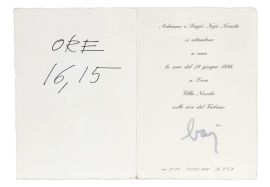 ORE
16,15
Adriana e Sergio Nojo Noseda
vi attendono
a cena
la sera del 29 giugno
a Luni
Villa Noseda
sulle rive del Verbano
baj